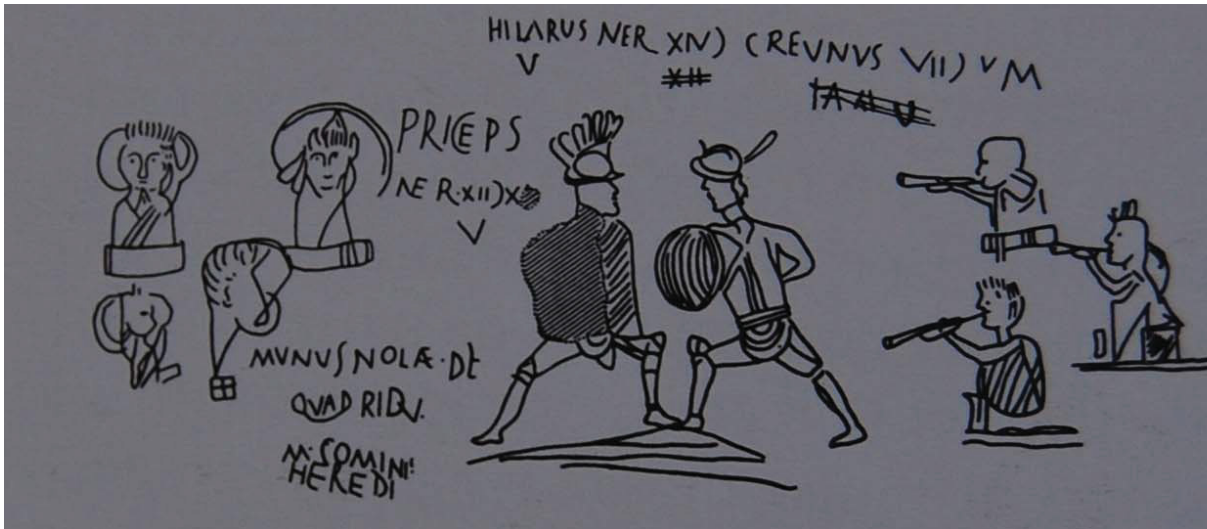 HILARUS NER XIV) (REUNUS VII) V M
V
PRICEPS
NER·XII)X
V
MUNUS NOLÆ·DE
QUADRIDU.
M·SOMINI:
HEREDI